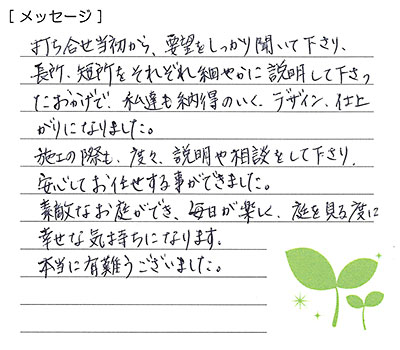 [ メッセージ ]
打ち合せ当初から、要望をしっかり聞いて下さり、
長所、短所をそれぞれ細やかに説明して下さっ
たおかげで、私達も納得のいく、デザイン、仕上
がりになりました。
施工の際も、度々、説明や相談をして下さり、
安心してお任せする事ができました。
素敵なお庭ができ、毎日が楽しく、庭を見る度に
幸せな気持ちになります。
本当に有難うございました。